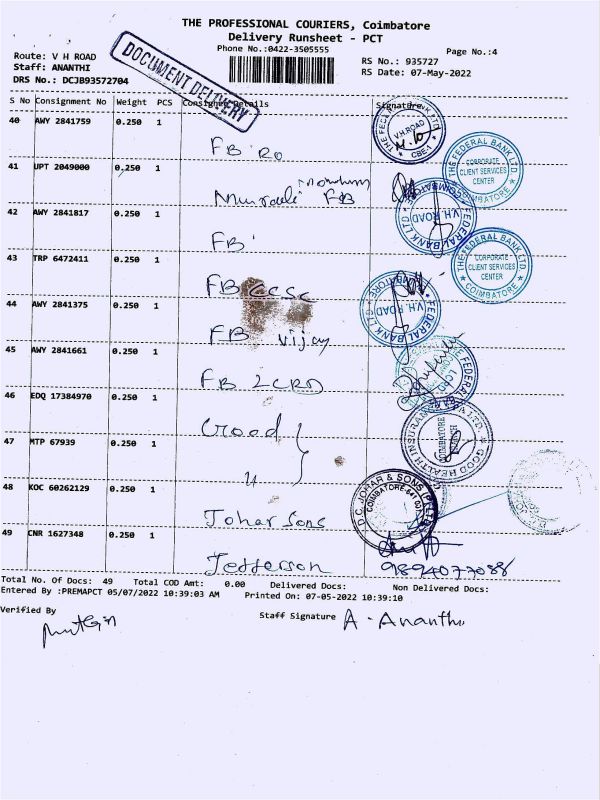 THE PROFESSIONAL COURIERS, Coimbatore
Delivery Runsheet - PCT
Phone No.:0422-3505555
Page No.:4
Route: V H ROAD
Staff: ANANTHI
DRS No.: DCJB93572704
RS No.: 935727
RS Date: 07-May-2022
DOCUMENT DELIVERY
S No Consignment No Weight PCS Consignee Details Signature
40 AWY 2841759 0.250 1 FB RO
THE FEDERAL BANK LTD. V.H.ROAD CBE-1
41 UPT 2049000 0.250 1 FB
THE FEDERAL BANK LTD. CORPORATE CLIENT SERVICES CENTER COIMBATORE
42 AWY 2841817 0.250 1 FB
FEDERAL BANK LTD V.H. ROAD COIMBATORE
43 TRP 6472411 0.250 1 FB CCSC
THE FEDERAL BANK LTD. CORPORATE CLIENT SERVICES CENTER COIMBATORE
44 AWY 2841375 0.250 1 FB Vijay
FEDERAL BANK LTD V.H. ROAD COIMBATORE
45 AWY 2841661 0.250 1 FB LCRD
FEDERAL LCRD
46 EDQ 17384970 0.250 1 Good
GOOD HEALTH INSURANCE LTD. COIMBATORE
47 MTP 67939 0.250 1 "
48 KOC 60262129 0.250 1 Johar Sons
D.C. JOHAR & SONS (P) LTD. COIMBATORE 641 001
49 CNR 1627348 0.250 1 Jefferson
9894077088
Total No. Of Docs: 49 Total COD Amt: 0.00 Delivered Docs: Non Delivered Docs:
Entered By :PREMAPCT 05/07/2022 10:39:03 AM Printed On: 07-05-2022 10:39:10
Verified By
Staff Signature A. Ananthi